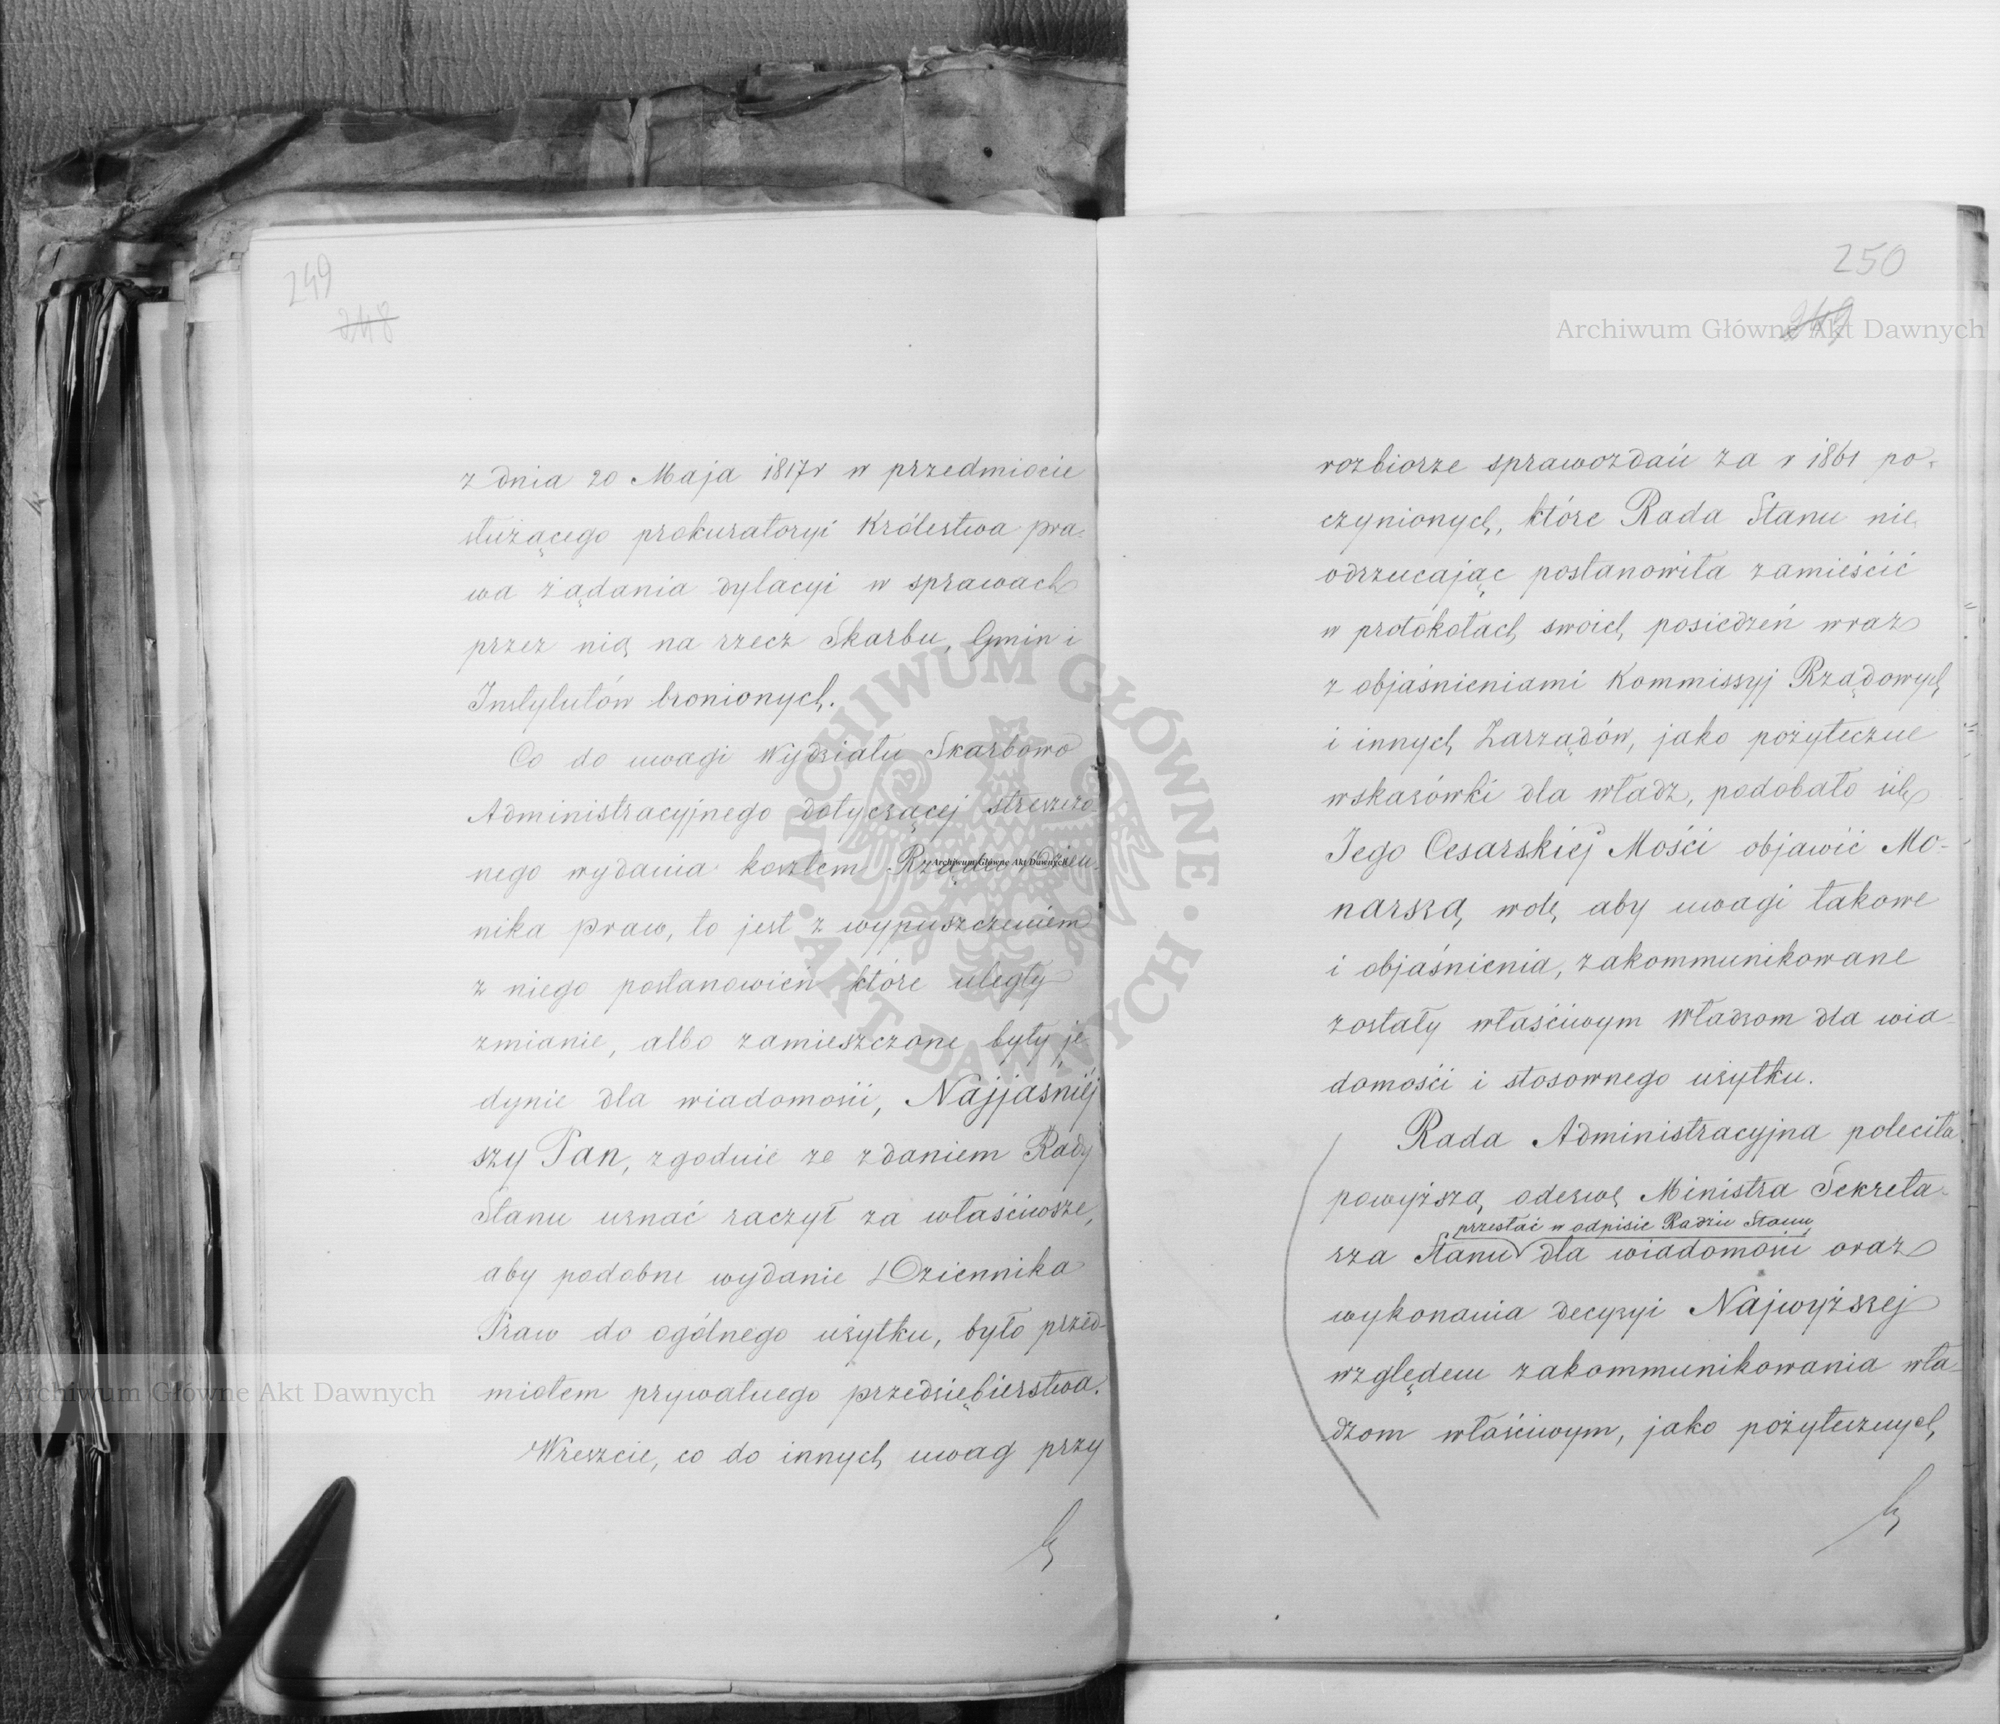 249
248
z dnia 20 Maja 1817 r w przedmiocie
służącego prokuratoryi Królestwa pra-
wa żądania dylacyi w sprawach
przez nią na rzecz Skarbu, Gmin i
Instytutów bronionych.
Co do uwagi Wydziału Skarbowo
Administracyjnego dotyczącej streszczo
nego wydania kosztem Rządu Dzien-
nika praw, to jest z wypuszczeniem
z niego postanowień które uległy
zmianie, albo zamieszczone były je
dynie dla wiadomości, Najjaśniej
szy Pan, zgodnie ze zdaniem Rady
Stanu uznać raczył za właściwsze,
aby podobne wydanie Dziennika
Praw do ogólnego użytku, było przed-
miotem prywatnego przedsiębierstwa.
Wreszcie, co do innych uwag przy
250
249
rozbiorze sprawozdań za r 1861 po-
czynionych, które Rada Stanu nie
odrzucając postanowiła zamieścić
w protokółach swoich posiedzeń wraz
z objaśnieniami Kommissyj Rządowych
i innych Zarządów, jako pożyteczne
wskazówki dla władz, podobało się
Jego Cesarskiej Mości objawić Mo-
narszą wolę aby uwagi takowe
i objaśnienia, zakommunikowane
zostały właściwym Władzom dla wia-
domości i stosownego użytku.
Rada Administracyjna poleciła
powyższą odezwę Ministra Sekreta-
przesłać w odpisie Radzie Stanu
rza Stanu dla wiadomości oraz
wykonania decyzyi Najwyższej
względem zakommunikowania wła-
dzom właściwym, jako pożytecznych,
Archiwum Główne Akt Dawnych
Archiwum Główne Akt Dawnych
Archiwum Główne Akt Dawnych
ARCHIWUM GŁÓWNE · AKT DAWNYCH ·